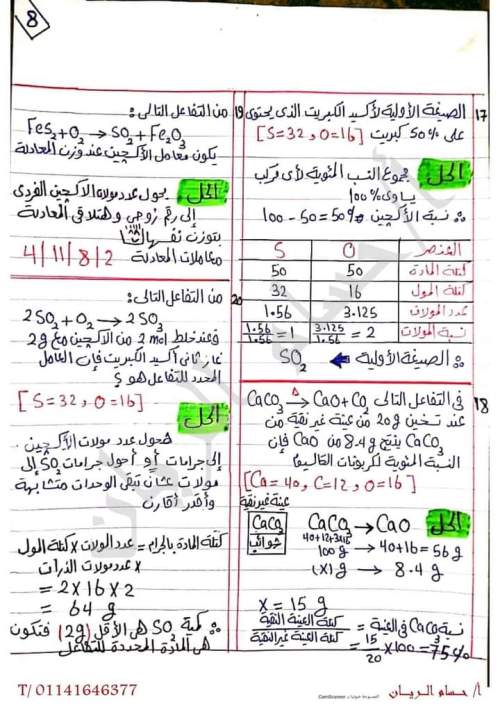 8
17 الصيغة الأولية لأكسيد الكبريت الذى يحتوى
على 50% كبريت [S=32 و O=16]
الحل
مجموع النسب المئوية لأى مركب
يساوى 100%
∴ نسبة الأكسجين 50% = 50 - 100
العنصر O S
كتلة المادة 50 50
كتلة المول 16 32
عدد المولات 3.125 1.56
نسبة المولات 3.125/1.56 = 2 1.56/1.56 = 1
∴ الصيغة الأولية SO2
18 فى التفاعل التالى CaCO3 Δ→ CaO + CO2
عند تسخين 20g من عينة غير نقية من
CaCO3 ينتج 8.4g من CaO فإن
النسبة المئوية لكربونات الكالسيوم
[Ca=40, C=12, O=16]
الحل
عينة غير نقية
CaCO3
شوائب
CaCO3 → CaO
40+12+3x16
100g → 40+16=56g
(X)g → 8.4g
X = 15g
نسبة CaCO3 فى العينة = كتلة العينة النقية / كتلة العينة الغير النقية
= 15/20 x100 = 75%
19 من التفاعل التالى:
FeS2 + O2 → SO2 + Fe2O3
يكون معامل الأكسجين عند وزن المعادلة
الحل
بحول عدد مولات الاكسجين الفردى
إلى رقم زوجى وهتلاقى المعادلة
بتوزن نفسها
معاملات المعادلة 4/11/8/2
20 من التفاعل التالى:
2SO2 + O2 → 2SO3
وعند خلط 2 mol من الأكسجين مع 2g
غاز ثانى أكسيد الكبريت فإن العامل
المحدد للتفاعل هو ؟
[S=32 و O=16]
الحل
هحول عدد مولات الأكسجين
إلى جرامات أو أحول جرامات SO2 إلى
مولات عشان تبقى الوحدات متشابهة
وأقدر أقارن
كتلة المادة بالجرام = عدد المولات x كتلة المول
x عدد مولات الذرات
= 2x16x2
= 64 g
∴ كمية SO2 هى الأقل (2g) فتكون
هى المادة المحددة للتفاعل
T/ 01141646377
أ/ حسام الريان
الممسوحة ضوئيا بـ CamScanner
أ/حسام الريان